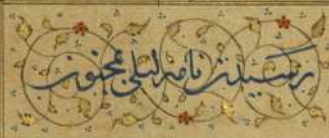 رسیدن نامه لیلی بمجنون